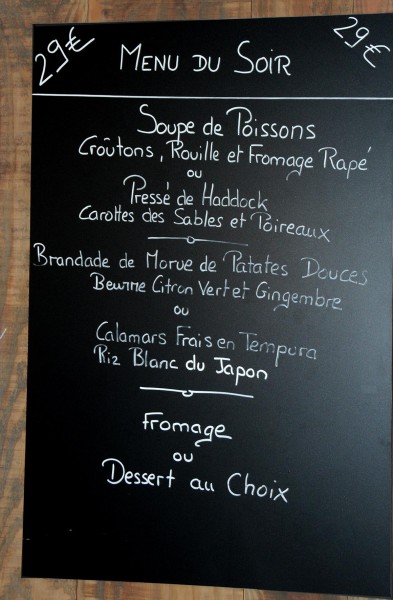 29€ MENU DU SOIR 29€
Soupe de Poissons
Croûtons, Rouille et Fromage Rapé
ou
Pressé de Haddock
Carottes des Sables et Poireaux
Brandade de Morue de Patates Douces
Beurre Citron Vert et Gingembre
ou
Calamars Frais en Tempura
Riz Blanc du Japon
Fromage
ou
Dessert au Choix